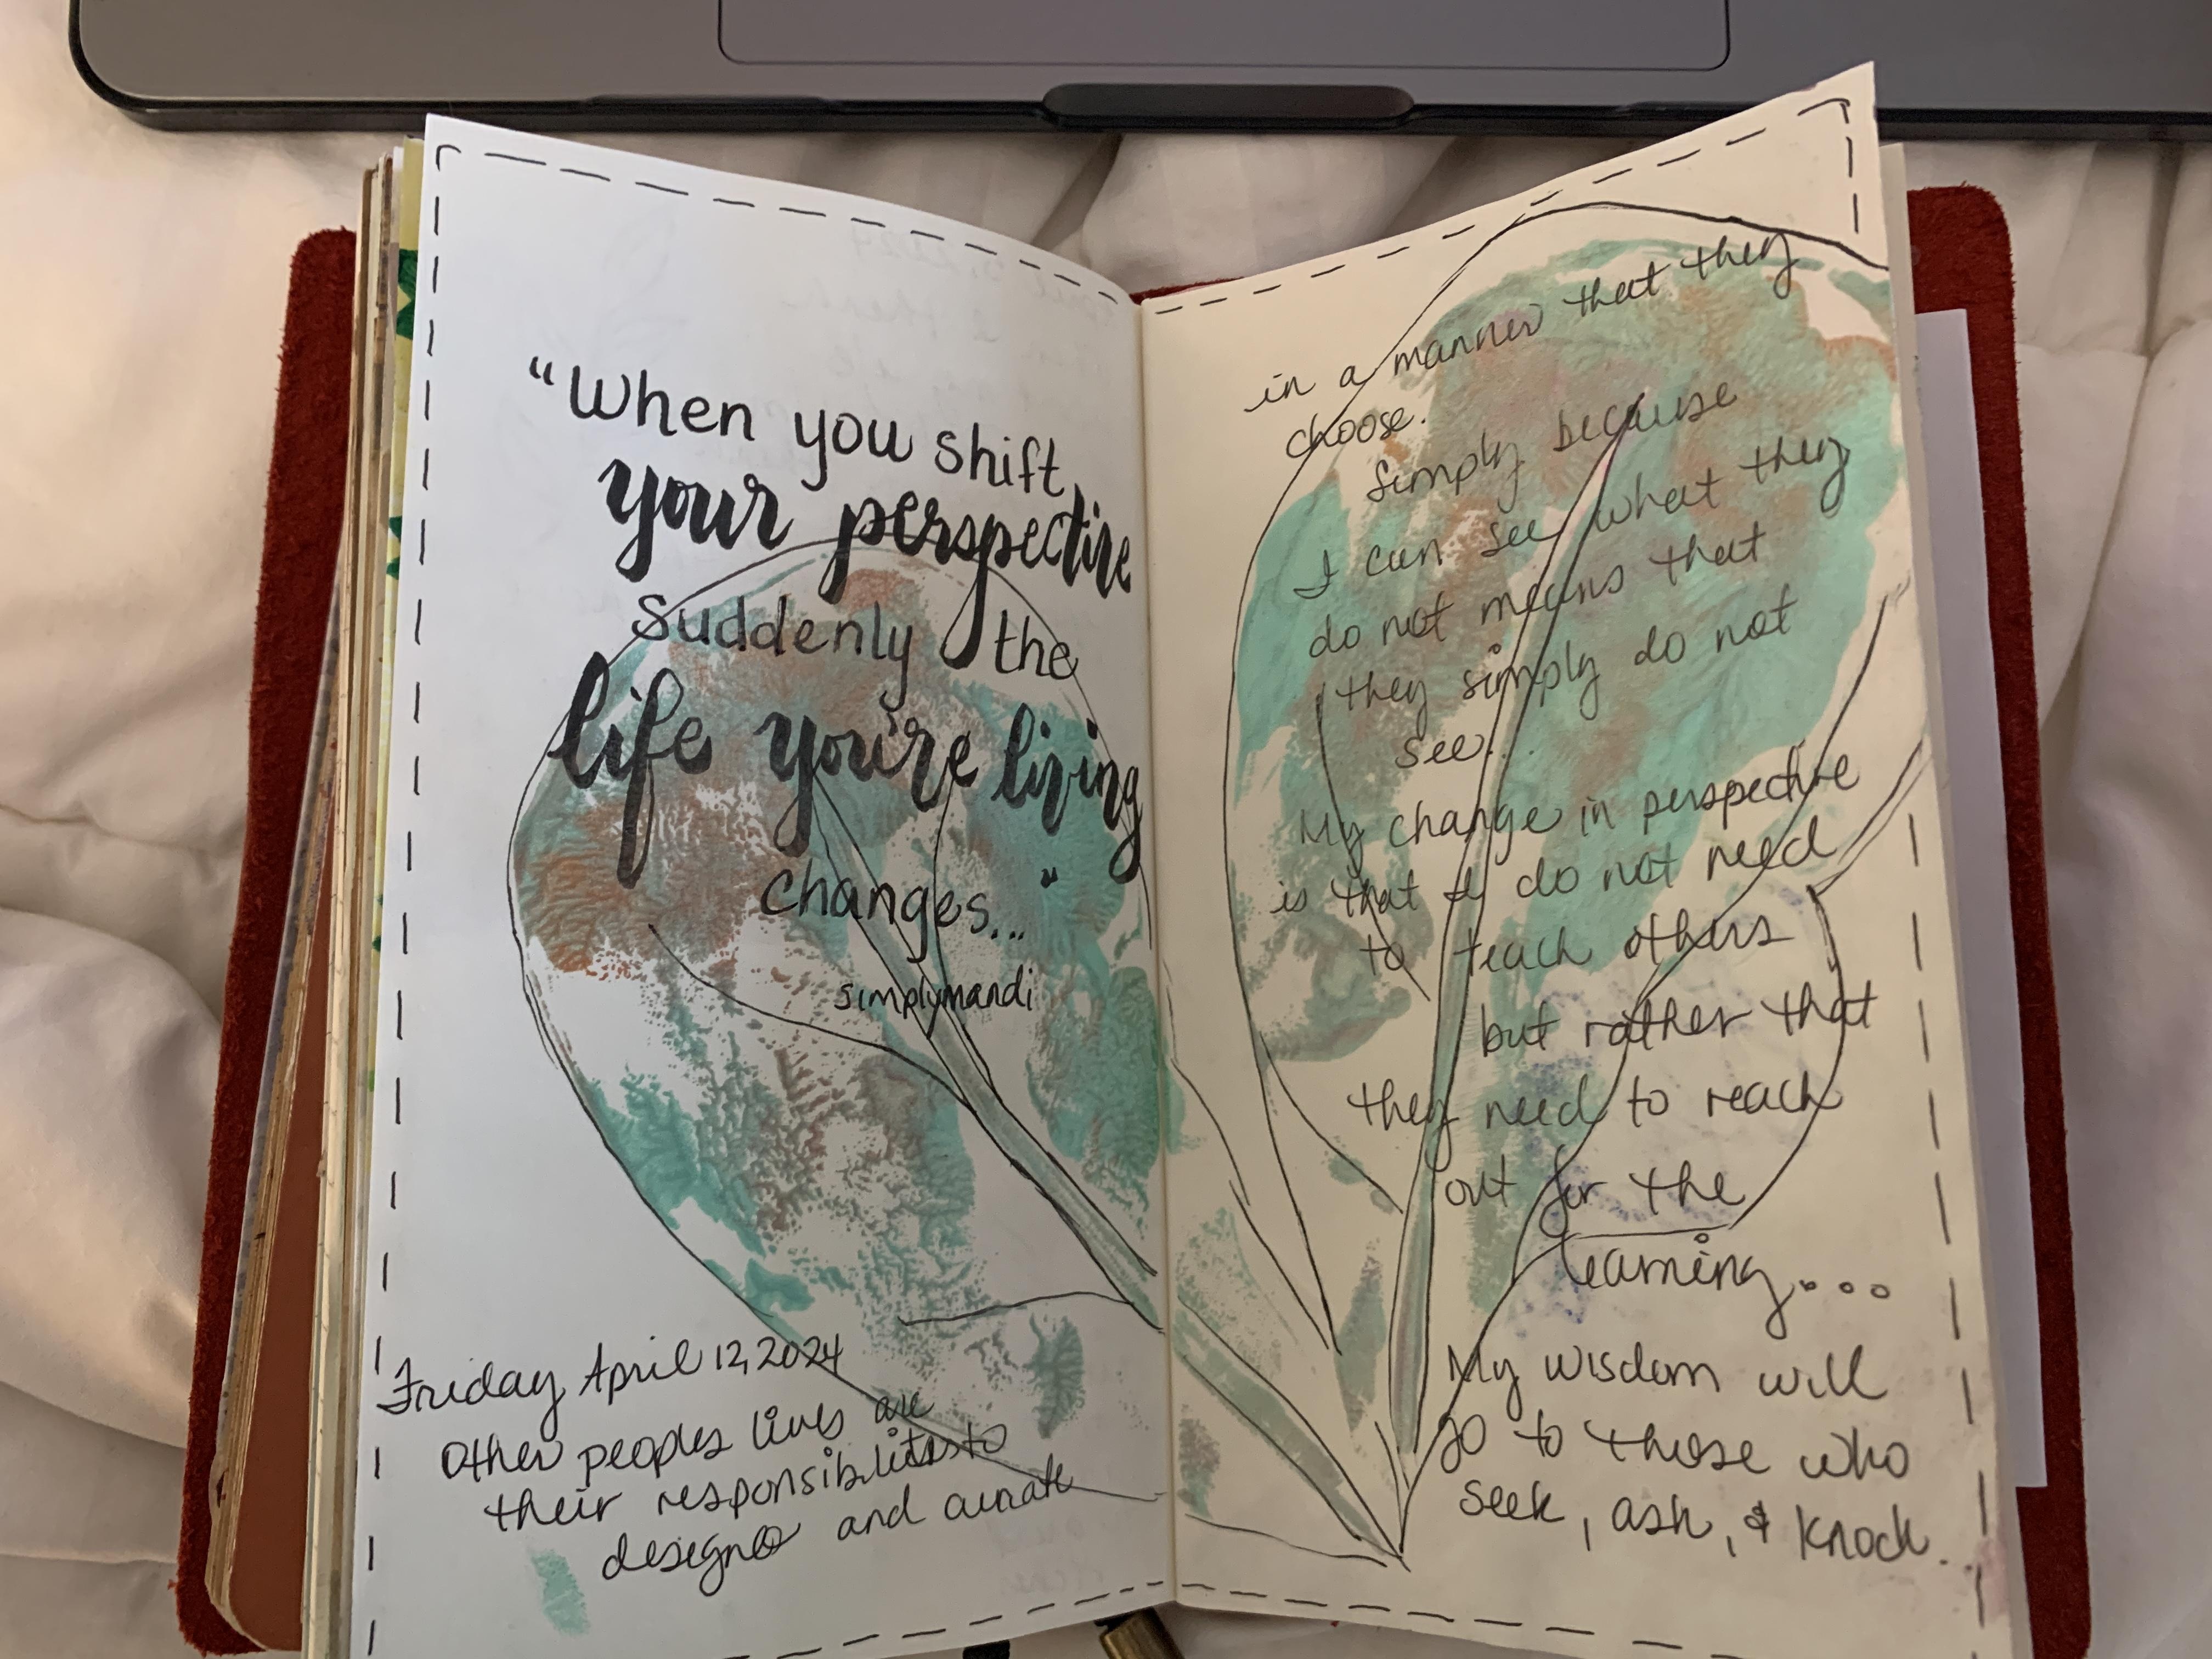 "When you shift
your perspective
Suddenly the
life you're living
changes..."
simplymandi
Friday April 12, 2024
Other peoples lives are
their responsibilities to
design and curate
in a manner that they
choose.
Simply because
I can see what they
do not means that
they simply do not
see...
My change in perspective
is that I do not need
to teach others
but rather that
they need to reach
out for the
learning...
My wisdom will
go to those who
seek, ask, & knock.